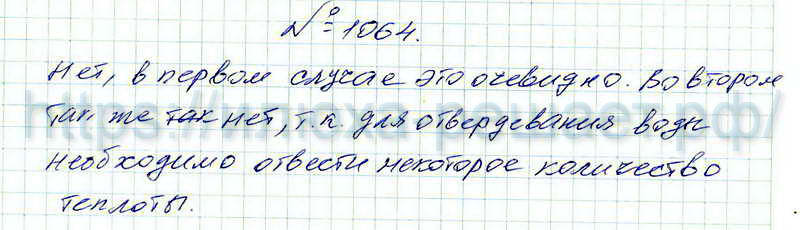 № 1064.
Нет, в первом случае это очевидно. Во втором
так же так нет, т.к. для отвердевания воды
необходимо отвести некоторое количество
теплоты.